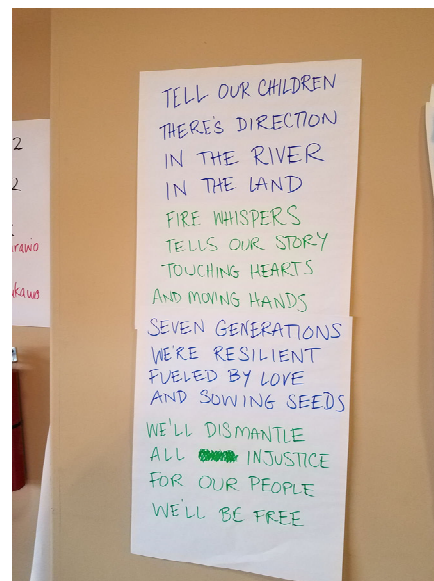 TELL OUR CHILDREN
THERE'S DIRECTION
IN THE RIVER
IN THE LAND
FIRE WHISPERS
TELLS OUR STORY
TOUCHING HEARTS
AND MOVING HANDS
SEVEN GENERATIONS
WE'RE RESILIENT
FUELED BY LOVE
AND SOWING SEEDS
WE'LL DISMANTLE
ALL INJUSTICE
FOR OUR PEOPLE
WE'LL BE FREE
2
2